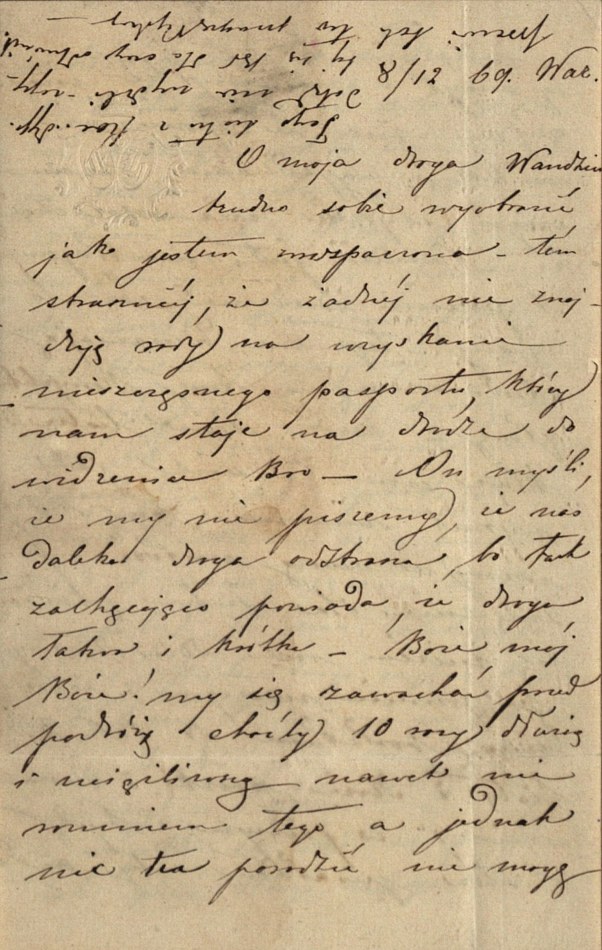 8/12 69. War.
O moja droga Wandziu
trudno sobie wyobrazić
jak jestem rozpaczona - tém
straszniéj, że żadnéj nie znaj-
duję rady na uzyskanie
nieszczęsnego pasportu, który
nam staje na drodze do
widzenia Bro — On myśli,
że my nie piszemy, że nas
daleka droga odstrasza, bo tak
zachęcająco powiada, że droga
łatwa i krótka — Boże mój
Boże! my się zawachać przed
podróżą choćby 10 razy dłuższą
i uciążliwszą nawet nie
rozumiem tego a jednak
nic tu poradzić nie mogę